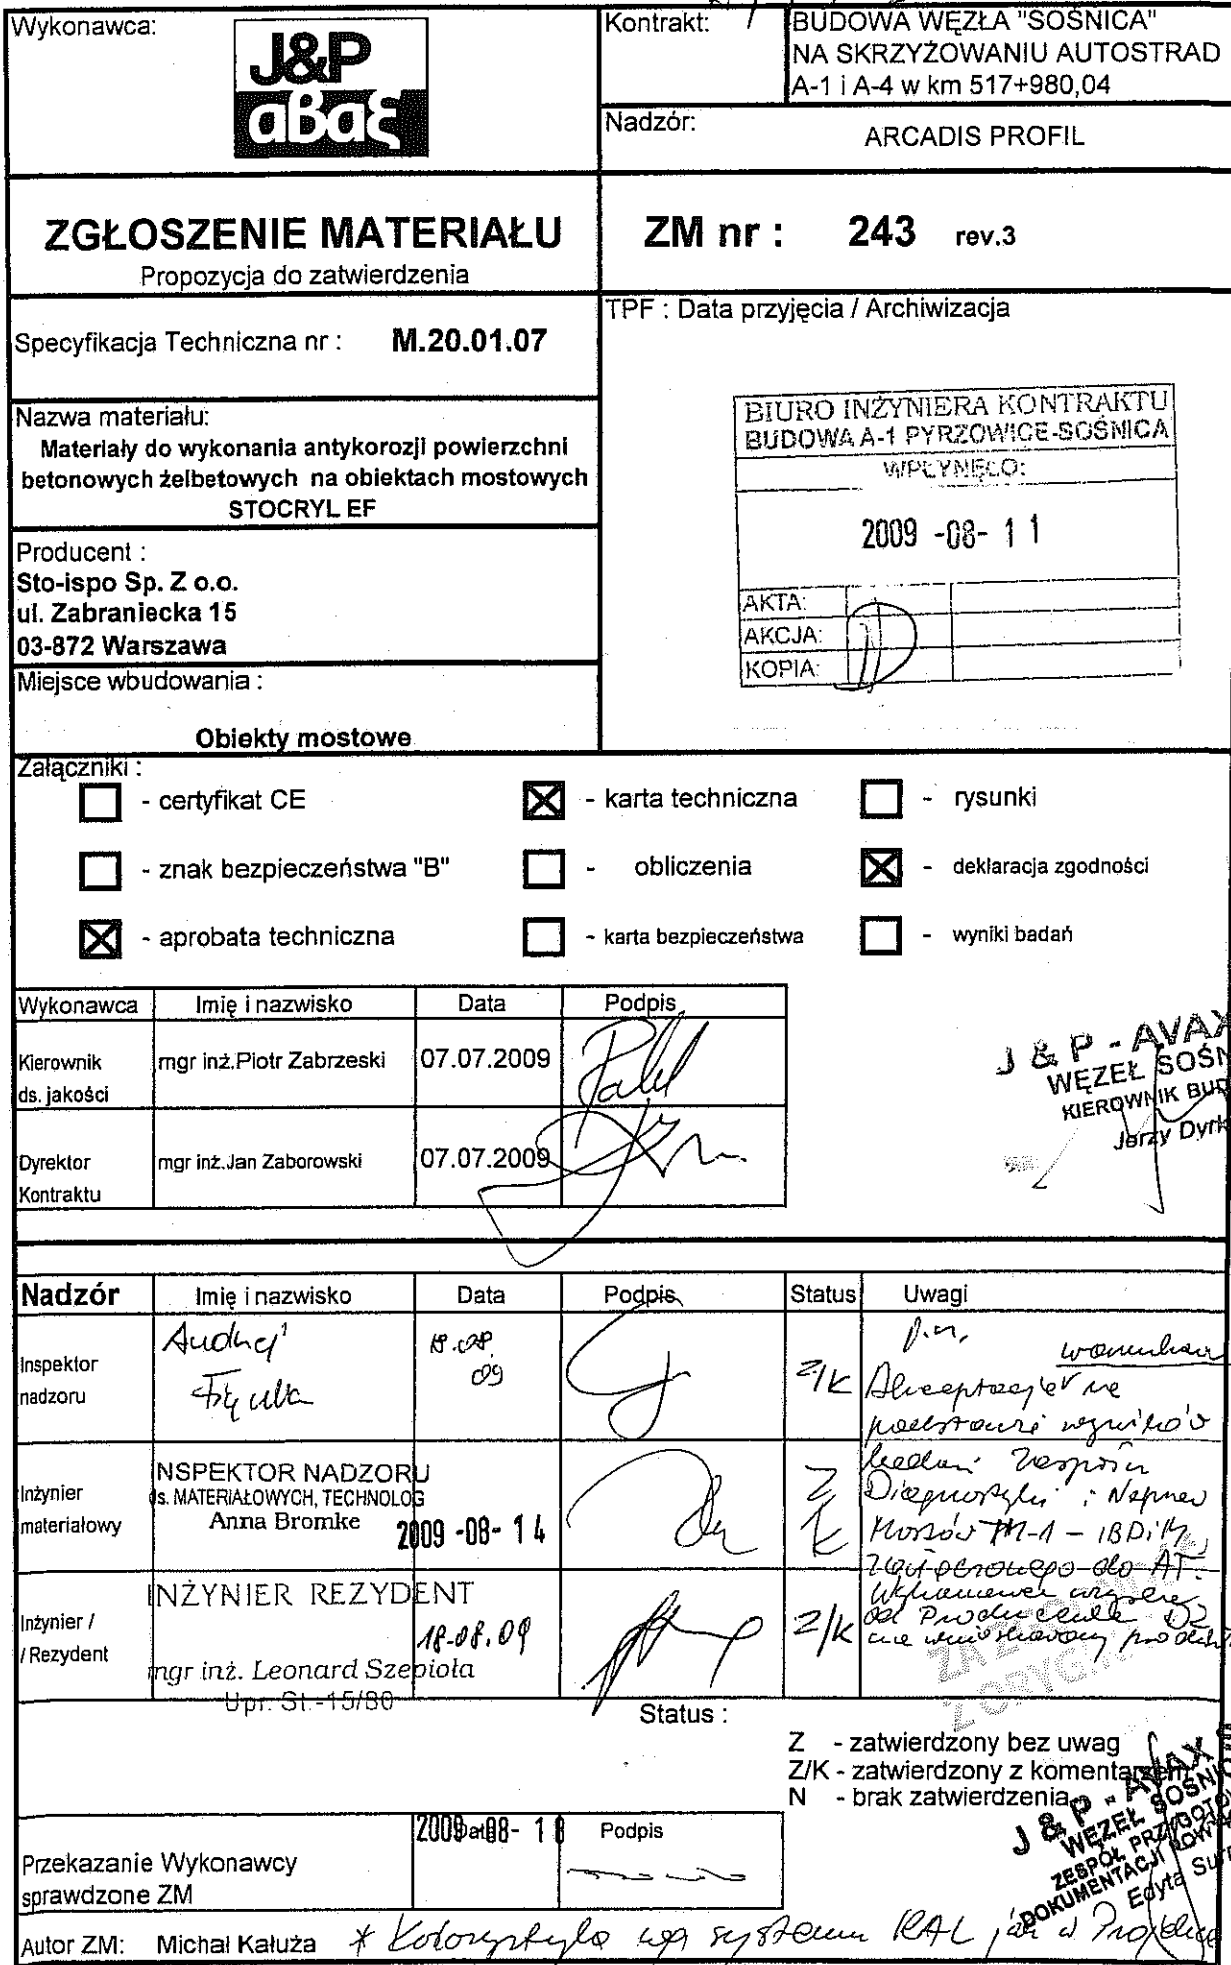 Wykonawca:
J&P
aBaξ
Kontrakt:
BUDOWA WĘZŁA "SOŚNICA"
NA SKRZYŻOWANIU AUTOSTRAD
A-1 i A-4 w km 517+980,04
Nadzór:
ARCADIS PROFIL
ZGŁOSZENIE MATERIAŁU
Propozycja do zatwierdzenia
ZM nr : 243 rev.3
Specyfikacja Techniczna nr : M.20.01.07
TPF : Data przyjęcia / Archiwizacja
BIURO INŻYNIERA KONTRAKTU
BUDOWA A-1 PYRZOWICE-SOŚNICA
WPŁYNĘŁO:
2009 -08- 11
AKTA:
AKCJA:
KOPIA:
Nazwa materiału:
Materiały do wykonania antykorozji powierzchni
betonowych żelbetowych na obiektach mostowych
STOCRYL EF
Producent :
Sto-ispo Sp. Z o.o.
ul. Zabraniecka 15
03-872 Warszawa
Miejsce wbudowania :
Obiekty mostowe
Załączniki :
- certyfikat CE
- karta techniczna
- rysunki
- znak bezpieczeństwa "B"
- obliczenia
- deklaracja zgodności
- aprobata techniczna
- karta bezpieczeństwa
- wyniki badań
Wykonawca Imię i nazwisko Data Podpis
Kierownik
ds. jakości
mgr inż.Piotr Zabrzeski 07.07.2009
Dyrektor
Kontraktu
mgr inż.Jan Zaborowski 07.07.2009
J & P - AVAX
WĘZEŁ SOŚN
KIEROWNIK BUD
Jerzy Dyrk
Nadzór Imię i nazwisko Data Podpis Status Uwagi
Inspektor
nadzoru
18.08.
09
Z/K
Inżynier
materiałowy
NSPEKTOR NADZORU
ds. MATERIAŁOWYCH, TECHNOLOG
Anna Bromke
2009 -08- 14
Z
K
Akceptacja na
podstawie wyników
badań Zespołu
Diagnostyki i Napraw
Mostów TM-1 - IBDiM
do AT.
od Producenta DZ
Inżynier /
/ Rezydent
INŻYNIER REZYDENT
18.08.09
mgr inż. Leonard Szepioła
Upr. St.-15/80
Z/K
Status :
Z - zatwierdzony bez uwag
Z/K - zatwierdzony z komentarzem
N - brak zatwierdzenia
J & P - AVAX
WĘZEŁ SOŚNI
ZESPÓŁ
DOKUMENTACJI
Edyta
Przekazanie Wykonawcy
sprawdzone ZM
Data
2009 -08- 18
Podpis
Autor ZM: Michał Kałuża
* Kolorystyka wg systemu RAL jak w Projekcie